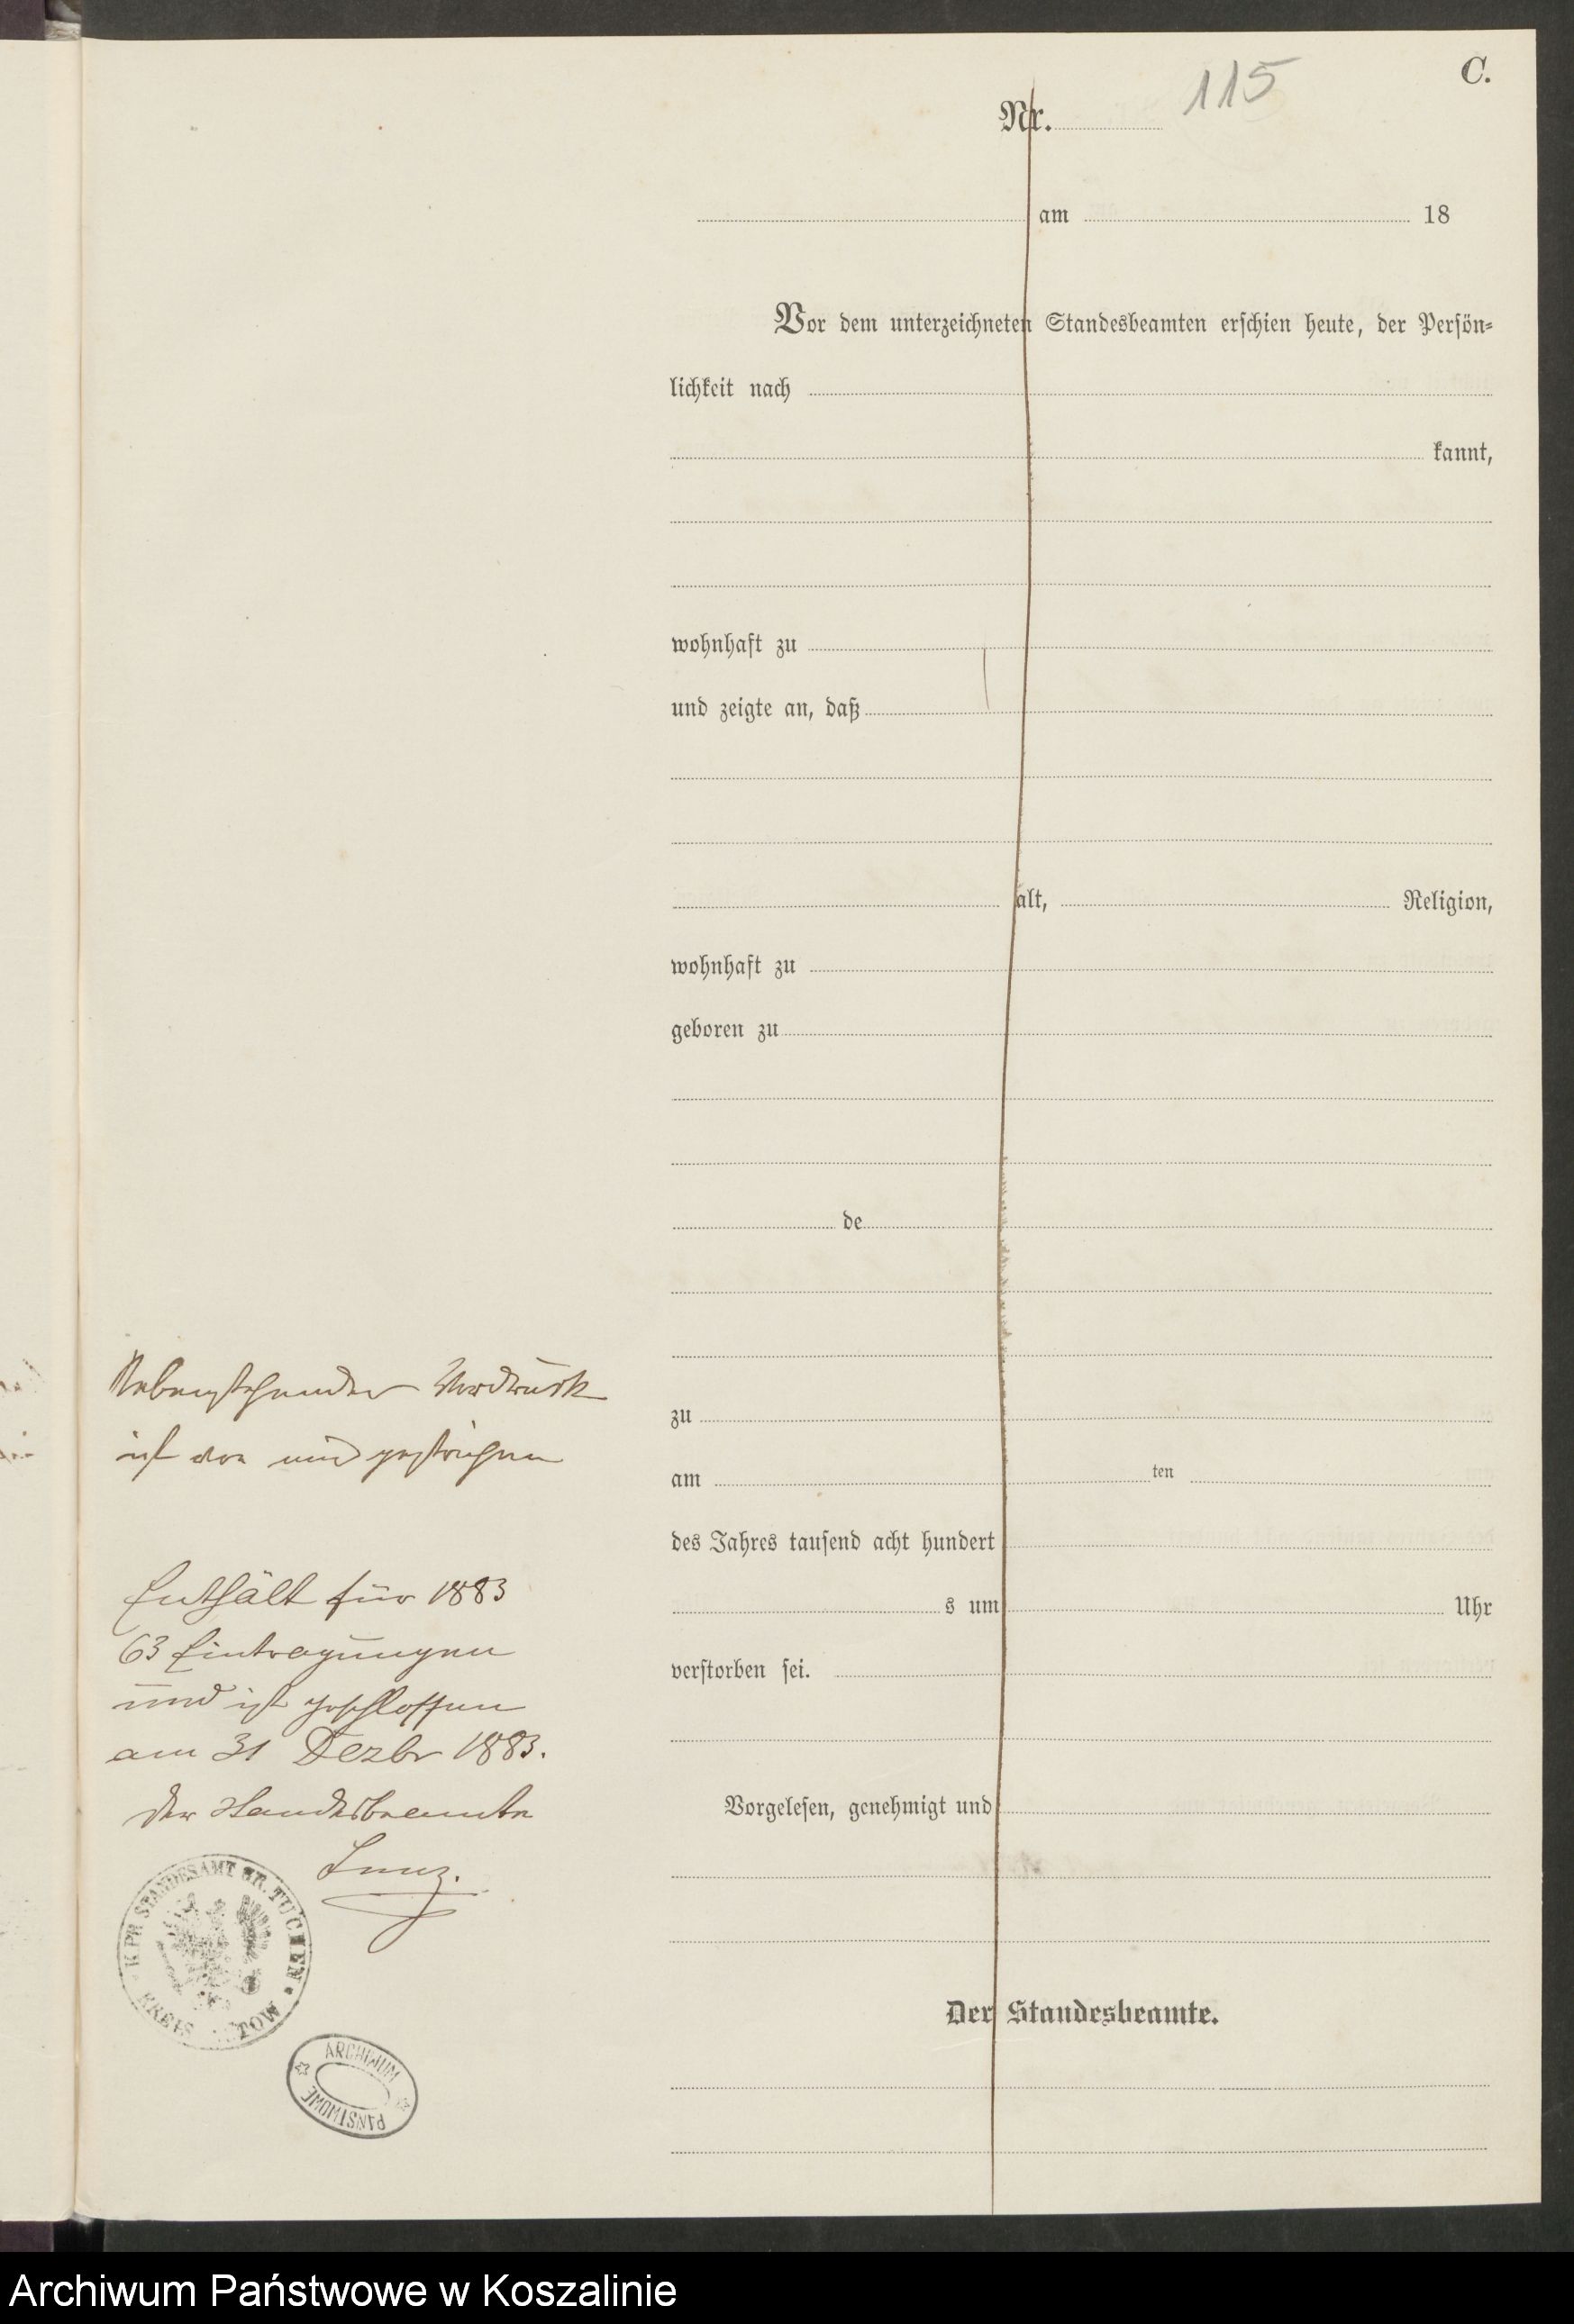 115
C.
Nr.
am 18
Vor dem unterzeichneten Standesbeamten erschien heute, der Persön-
lichkeit nach
kannt,
wohnhaft zu
und zeigte an, daß
alt, Religion,
wohnhaft zu
geboren zu
de
zu
am ten
des Jahres tausend acht hundert
s um Uhr
verstorben sei.
Vorgelesen, genehmigt und
Der Standesbeamte.
Nebenstehender Vordruck
ist von mir gestrichen
Enthält für 1883
63 Eintragungen
und ist geschlossen
am 31 Dezbr 1883.
Der Standesbeamte
K. PR. STANDESAMT GR. TUCHEN
KREIS TOW
ARCHIWUM
PAŃSTWOWE
Archiwum Państwowe w Koszalinie